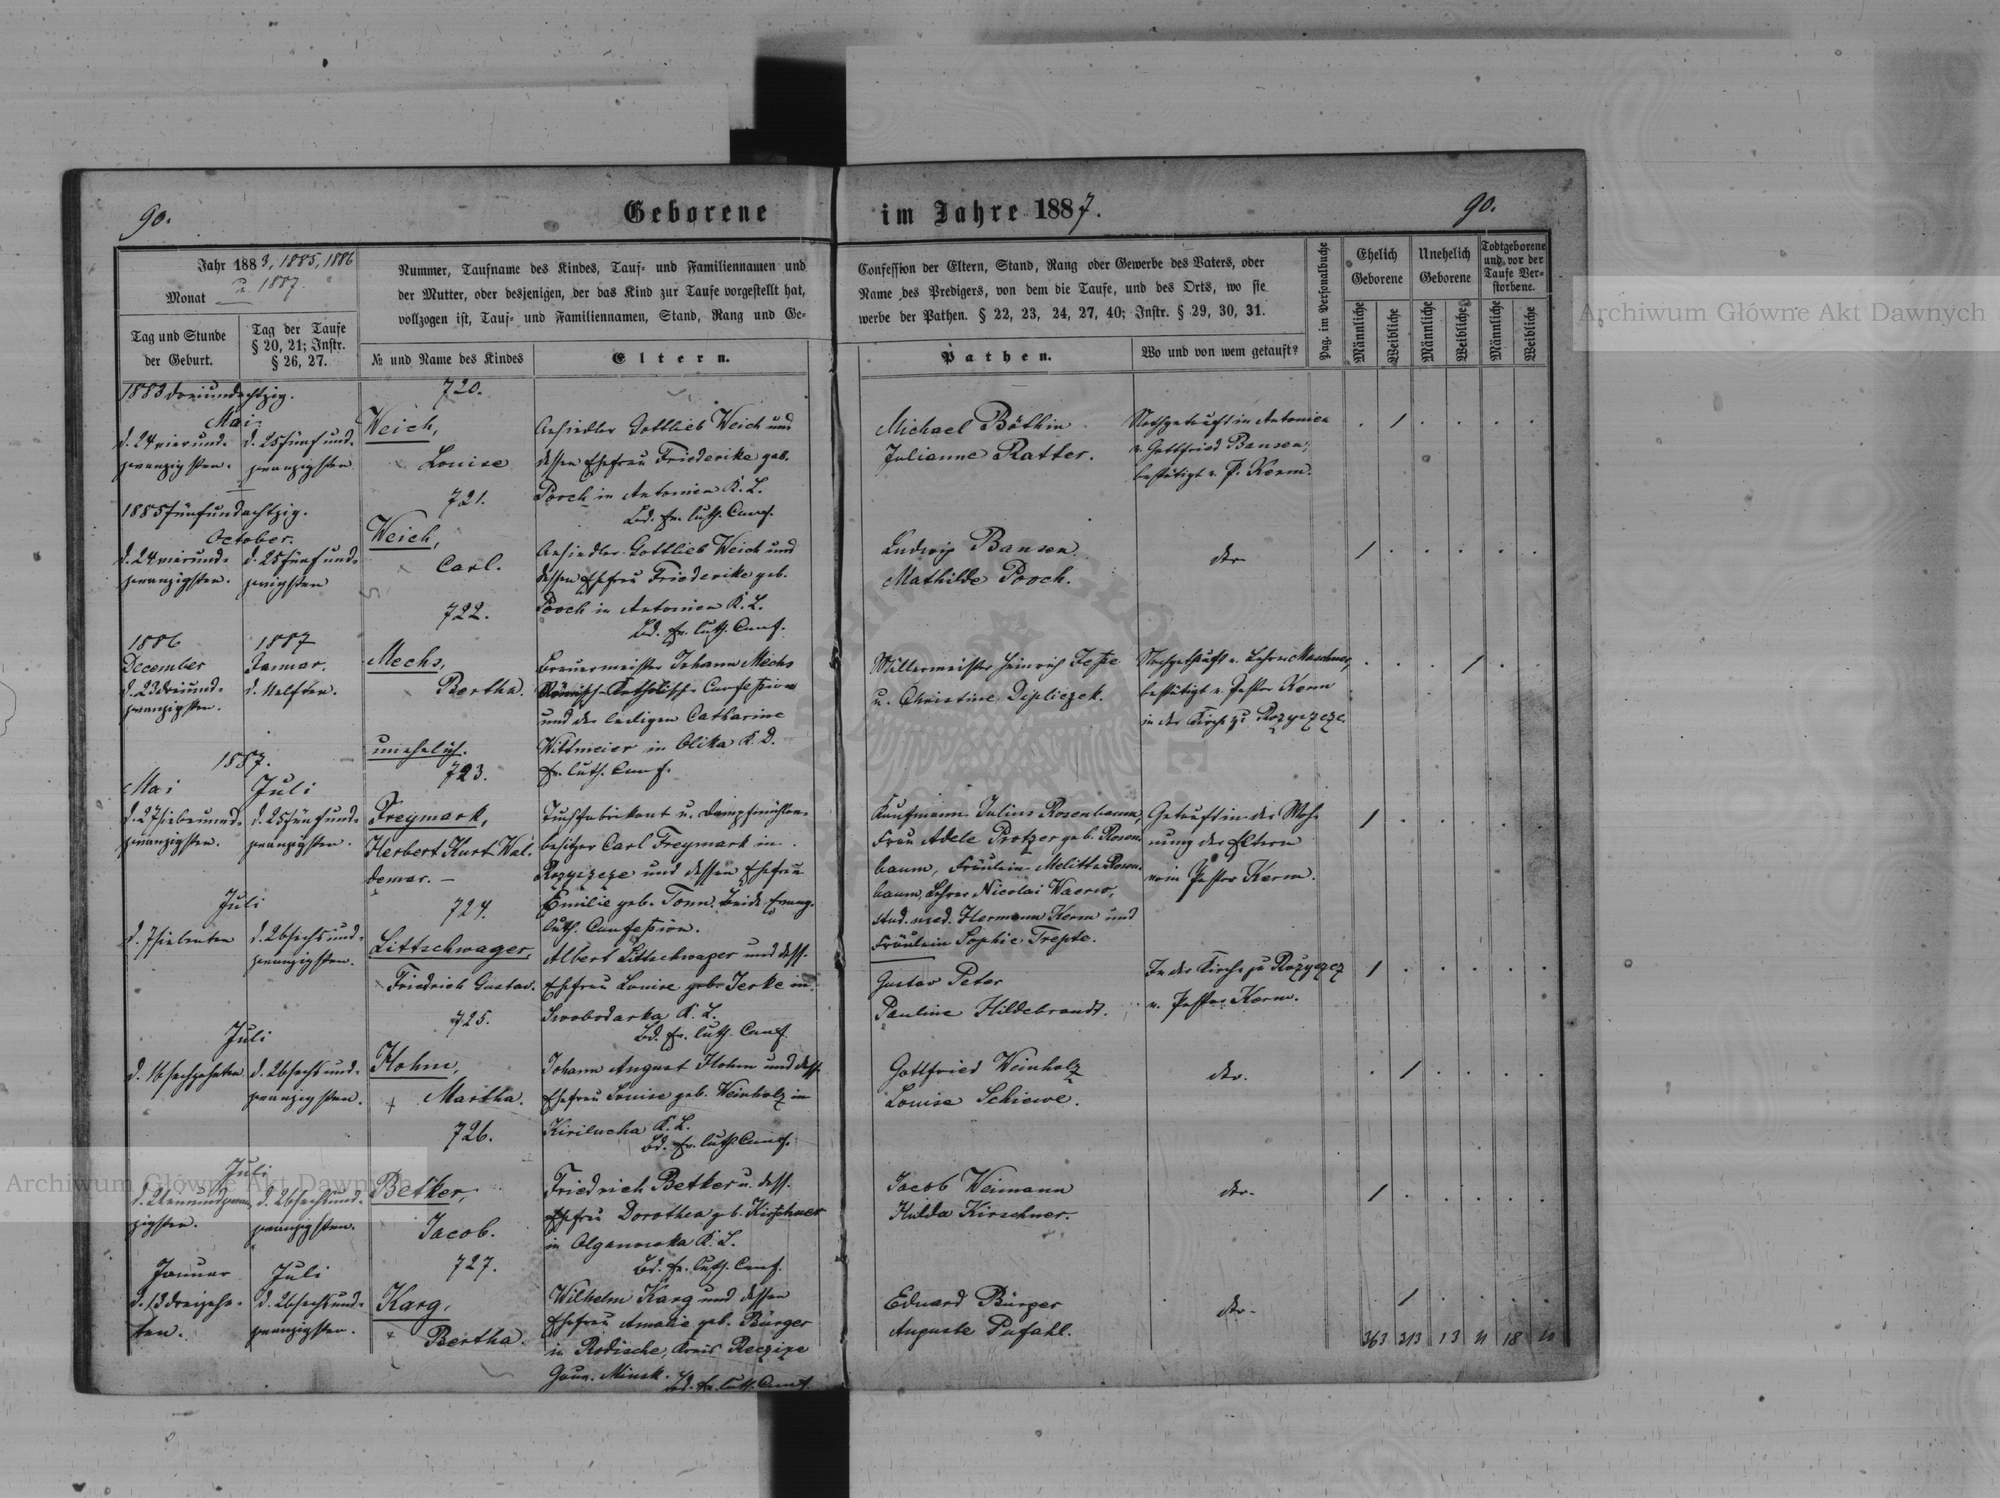 90.
Geborene
im Jahre 1887.
90.
Jahr 1883, 1885, 1886
u. 1887.
Monat
Tag und Stunde
der Geburt.
Tag der Taufe
§ 20, 21; Instr.
§ 26, 27.
Nummer, Taufname des Kindes, Tauf- und Familiennamen und
der Mutter, oder desjenigen, der das Kind zur Taufe vorgestellt hat,
vollzogen ist, Tauf- und Familiennamen, Stand, Rang und Ge-
№ und Name des Kindes
Eltern.
Confession der Eltern, Stand, Rang oder Gewerbe des Vaters, oder
Name des Predigers, von dem die Taufe, und des Orts, wo sie
werbe der Pathen. § 22, 23, 24, 27, 40; Instr. § 29, 30, 31.
Pathen.
Wo und von wem getauft?
Pag. im Personalbuche
Ehelich
Geborene
Unehelich
Geborene
Todtgeborene
und vor der
Taufe Ver-
storbene.
Männliche
Weibliche
Männliche
Weibliche
Männliche
Weibliche
1883 dreiundachtzig.
Mai
d. 24 vierund-
zwanzigsten.
d. 25 fünfund-
zwanzigsten
720.
Weich,
Louise
Ansiedler Gottlieb Weich und
dessen Ehefrau Friederike geb.
Pooch in Antonien K. L.
Bd. Ev. luth. Conf.
Michael Böthin
Julianne Ratter.
Nothgetauft in Antonien
v. Gottfried Bansen;
bestätigt v. P. Kerm.
1885 fünfundachtzig.
October.
d. 24 vierund-
zwanzigsten.
d. 25 fünfund-
zwigsten
721.
Weich,
Carl.
Ansiedler Gottlieb Weich und
dessen Ehefrau Friederike geb.
Pooch in Antonien K. L.
Bd. Ev. luth. Conf.
Ludwig Bansen.
Mathilde Pooch.
dto
1886
December
d. 23 dreiund-
zwanzigsten.
1887
Januar.
d. 11 elften.
722.
Mechs,
Bertha.
unehelich.
Brauermeister Johann Mechs
Römisch-Katholisch-Confession
und der ledigen Catharine
Wittmeier in Olika K. D.
Ev. luth. Conf.
Müllermeister Heinrich
u. Christine
Nothgetauft v. Lehrer
bestätigt v. Pastor Kerm
in der Kirche zu Rozyszcze.
1887.
Mai
d. 27 siebenund-
zwanzigsten.
Juli
d. 25 fünfund-
zwanzigsten.
723.
Freymark,
Herbert Kurt Wal-
demar. —
Tuchfabrikant u. Dampfmühlen-
besitzer Carl Freymark in
Rozyszcze und dessen Ehefrau
Emilie geb. Tonn. Beide Evang.
luth. Confession.
Kaufmann Julius Rosenbaum,
Frau Adele Protzer geb. Rosen-
baum, Fräulein Melitta Rosen-
baum, Lehrer Nicolai
stud. med. Hermann Kerm und
Fräulein Sophie Trepte.
Getauft in der Woh-
nung der Eltern
vom Pastor Kerm.
Juli
d. 7 siebenten
d. 26 sechsund-
zwanzigsten.
724.
Littschwager,
Friedrich Gustav.
Albert Littschwager und dess.
Ehefrau Louise geb. Jerke in
Swobodarka K. L.
Bd. Ev. luth. Conf.
Gustav Peter
Pauline Hildebrandt.
In der Kirche zu Rozyszcz
v. Pastor Kerm.
Juli
d. 16 sechzehnten
d. 26 sechsund-
zwanzigsten.
725.
Hohm,
Martha.
Johann August Hohm und dess.
Ehefrau Louise geb. Weinholz in
Kirilucha K. L.
Bd. Ev. luth. Conf.
Gottfried Weinholz
Louise Schiewe.
dto.
Juli
d. 21 einundzwan-
zigsten.
d. 26 sechsund-
zwanzigsten.
726.
Betker,
Jacob.
Friedrich Betker u. dess.
Ehefrau Dorothea geb. Kirschner
in Olganowka K. L.
Bd. Ev. luth. Conf.
Jacob Weimann
Hulda Kirschner.
dto.
Januar
d. 13 dreizehn-
ten.
Juli
d. 26 sechsund-
zwanzigsten.
727.
Karg,
Bertha.
Wilhelm Karg und dessen
Ehefrau Amalie geb. Bürger
in Rodische, Kreis Reczize
Gouv. Minsk.
Bd. Ev. luth. Conf.
Eduard Bürger
Auguste Pufahl.
dto.
363
313
13
11
18
Archiwum Główne Akt Dawnych
Archiwum Główne Akt Dawnych